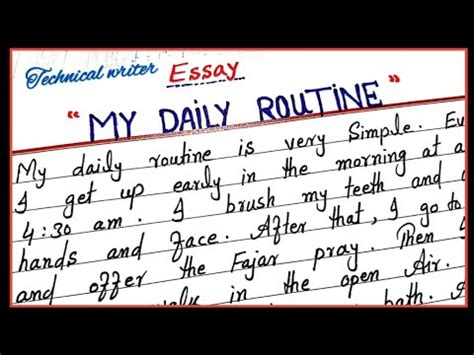 Technical writer Essay
"MY DAILY ROUTINE"
My daily routine is very Simple. Ev
I get up early in the morning at a
4:30 am. I brush my teeth and
hands and face. After that, I go to
and offer the Fajar pray. Then
in the open Air.
bath.